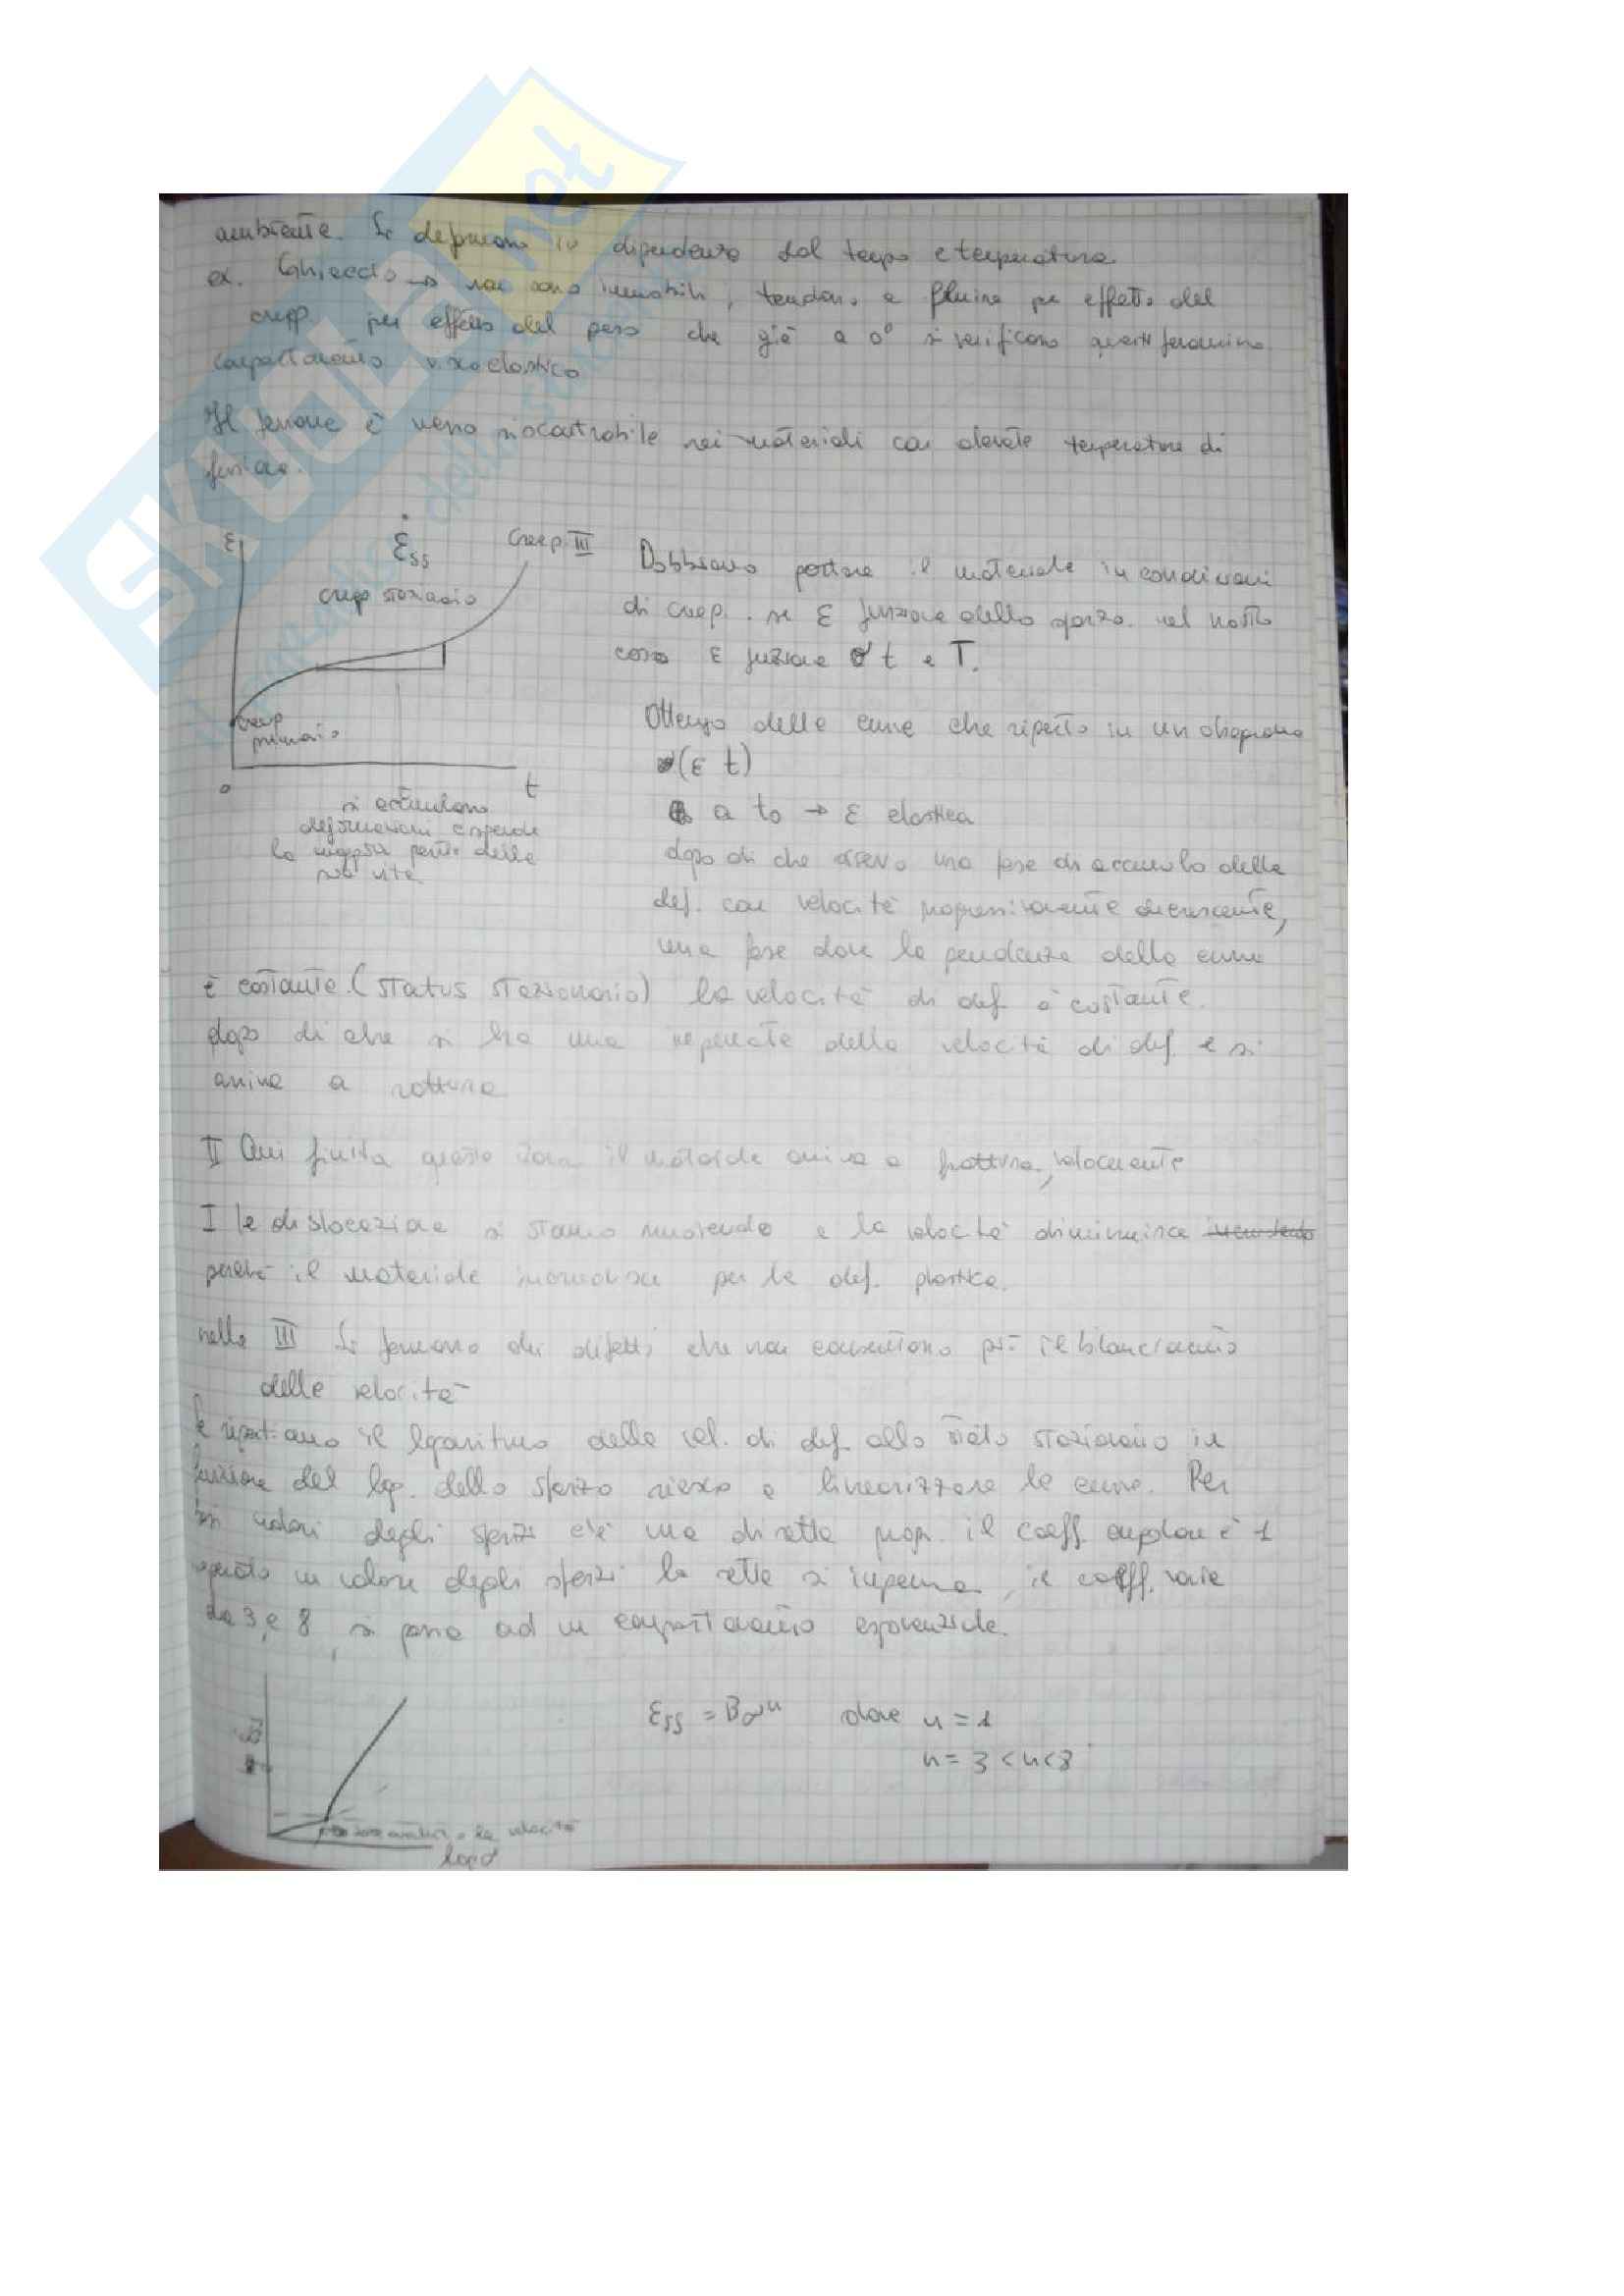 SKUOLA.net
ambiente. Si deformano in dipendenza dal tempo e temperatura
ex. Ghiaccio → non sono immobili, tendono a fluire per effetto del
creep. per effetto del peso che già a 0° si verificano questi fenomeni.
comportamento viscoelastico
Il fenomeno è meno riscontrabile nei materiali con elevate temperature di
fusione.
ε
ε̇ss
creep III
creep stazionario
creep
primario
o
t
si accumulano
deformazioni e spende
la maggior parte della
sua vita.
Dobbiamo portare il materiale in condizioni
di creep. se ε funzione dello sforzo. nel nostro
caso ε funzione σ t e T.
Ottengo delle curve che riporto in un diagramma
(ε t)
a t0 → ε elastica
dopo di che osservo una fase di accumulo delle
def. con velocità progressivamente decrescente,
una fase dove la pendenza della curva
è costante (status stazionario) la velocità di def. è costante.
dopo di che si ha una impennata della velocità di def. e si
arriva a rottura
II Qui finita questa zona il materiale arriva a frattura, velocemente
I le dislocazione si stanno muovendo e la velocità diminuisce
perché il materiale incrudisce per la def. plastica.
nella III Si formano dei difetti che non consentono più il bilanciamento
delle velocità
Se riportiamo il logaritmo della vel. di def. allo stato stazionario in
funzione del log. dello sforzo riesco a linearizzare le curve. Per
bassi valori degli sforzi c'è una diretta prop. il coeff. angolare è 1
superato un valore degli sforzi la retta si impenna, il coeff. varia
da 3 e 8, si passa ad un comportamento esponenziale.
εss = Bσⁿ dove n = 1
n = 3 < n < 8
la velocità
log σ